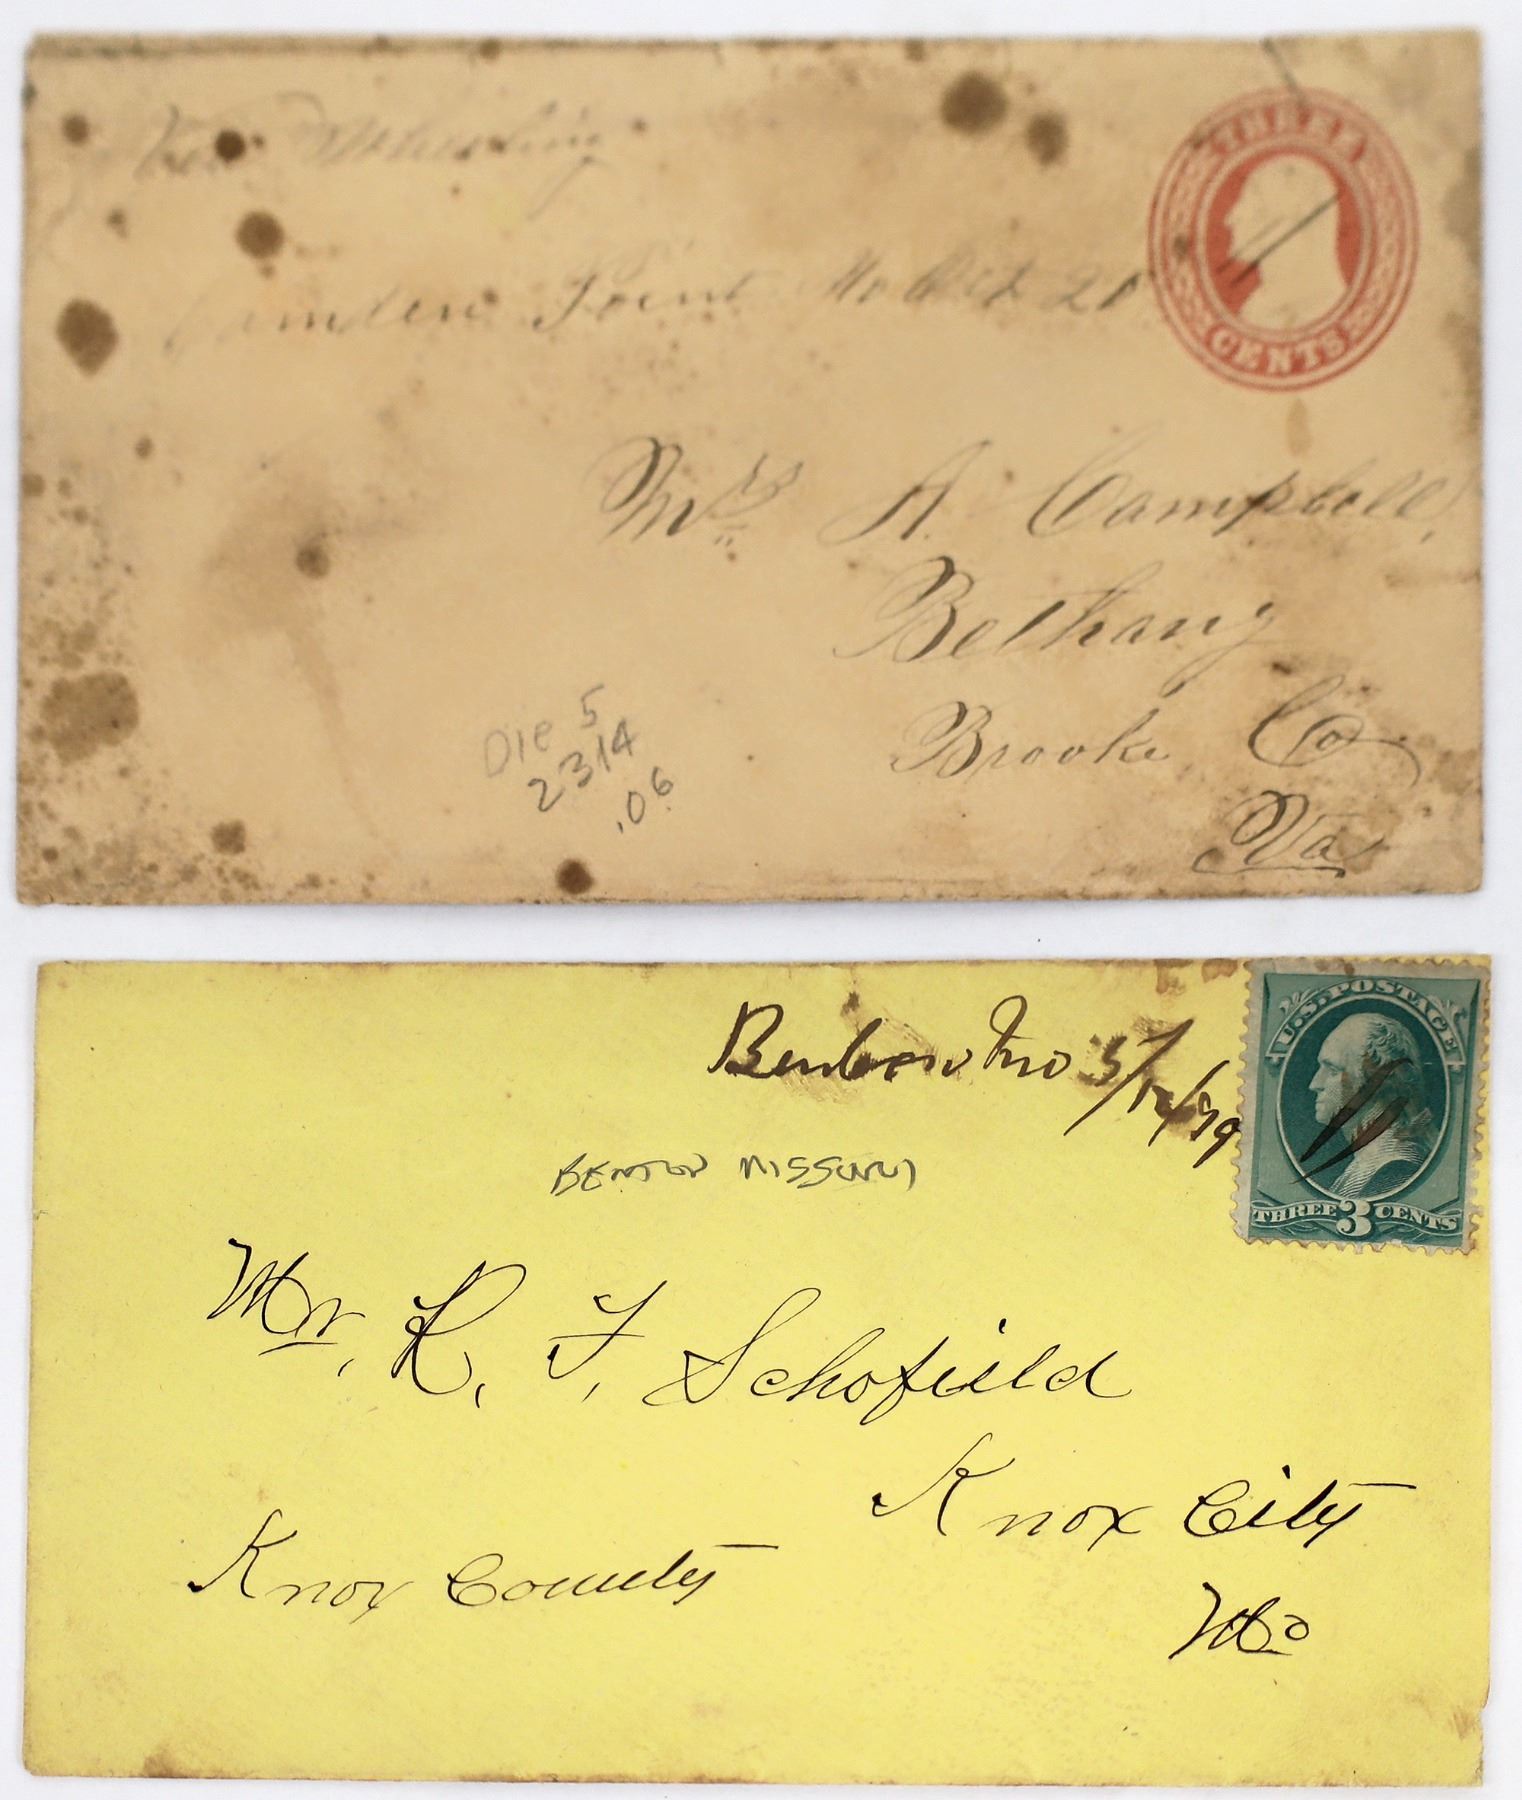 Via Wheeling
Camden Point Mo Oct 21
THREE
CENTS
Mrs A. Campbell,
Bethany
Brooke Co
Va
Die 5
2314
.06
Benbow Mo 5/12/79
U.S. POSTAGE
THREE 3 CENTS
BENTON MISSOURI
Mr. R. F. Schofield
Knox City
Knox County
Mo